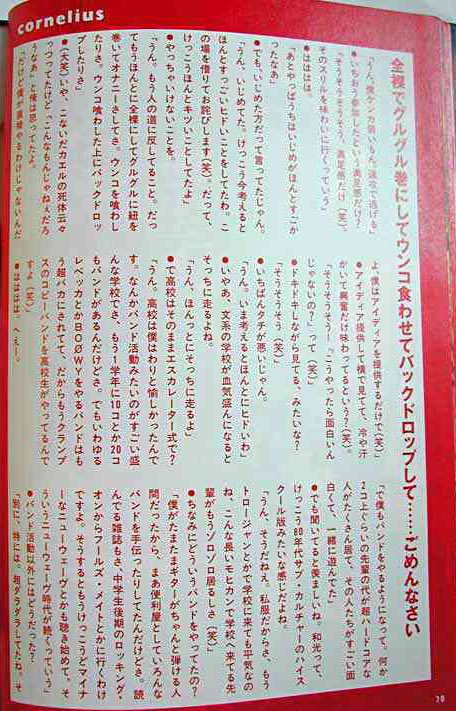 cornelius
全裸でグルグル巻にしてウンコ食わせてバックドロップして……ごめんなさい
「うん。僕ケンカ弱いもん。速攻で逃げる」
●いちおう参加したという満足感だけ?
「そうそうそうそう、満足感だけ(笑)。
そのスリルを味わいに行くっていう」
●はははは。
「あとやっぱうちはいじめがほんとすごか
ったなあ」
●でも、いじめた方だって言ってたじゃん。
「うん。いじめてた。けっこう今考えると
ほんとすっごいヒドいことをしてたわ。こ
の場を借りてお詫びします(笑)。だって、
けっこうほんとキツいことしてたよ」
●やっちゃいけないことを。
「うん。もう人の道に反してること。だっ
てもうほんとに全裸にしてグルグルに紐を
巻いてオナニーさしてさ。ウンコを喰わし
たりさ。ウンコ喰わした上にバックドロッ
プしたりさ」
●(大笑)いや、こないだカエルの死体云々
っつってたけど「こんなもんじゃねえだろ
うなあ」と俺は思ってたよ。
「だけど僕が直接やるわけじゃないんだ
よ、僕はアイディアを提供するだけで(笑)」
●アイディア提供して横で見てて、冷や汗
かいて興奮だけ味わってるという?(笑)。
「そうそうそう!『こうやったら面白いん
じゃないの?』って(笑)」
●ドキドキしながら見てる、みたいな?
「そうそうそう(笑)」
●いちばんタチが悪いじゃん。
「うん。いま考えるとほんとにヒドいわ」
●いやあ、文系の学校が血気盛んになると
そっちに走るよね。
「うん。ほんっとにそっちに走るよ」
●で高校はそのままエスカレーター式で?
「うん。高校は僕はわりと愉しかったんで
す。なんかバンド活動みたいのがすごい盛
んな学校でさ、もう1学年に10コとか20コ
もバンドがあるんだけどさ。でもいわゆる
レベッカとかBOØWYをやるバンドはも
う超バカにされてて、だからもうクランプ
スのコピーバンドを高校生がやってるんで
すよ(笑)」
●はははは、へぇー。
「で僕もバンドをやるようになって。何か
2コ上ぐらいの先輩の代が超ハードコアな
人がたくさん居て、その人たちがすごい面
白くて、一緒に遊んでた」
●でも聞いてると羨ましいね。和光って、
けっこう80年代サブ・カルチャーのハイス
クール版みたいな感じだよね。
「うん、そうだねえ。私服だからさ、もう
トロージャンとかで学校に来ても平気なの
ね。こんな長いモヒカンで学校へ来てる先
輩がゾロゾロ居るしさ(笑)」
●ちなみにどういうバンドをやってたの?
「僕がたまたまギターがちゃんと弾ける人
間だったから、まあ便利屋としていろんな
バンドを手伝ったりしてたんだけどさ。読
んでる雑誌もさ、中学生後期のロッキング・
オンからフールズ・メイトとかに行くわけ
ですよ。そうするともうけっこうどマイナ
ーなニューウェーヴとかも聴き始めて。そ
ういうニューウェーヴ時代が続くっていう」
●バンド活動以外にはどうだった?
「別に、特には。超ダラダラしてたね。そ
70